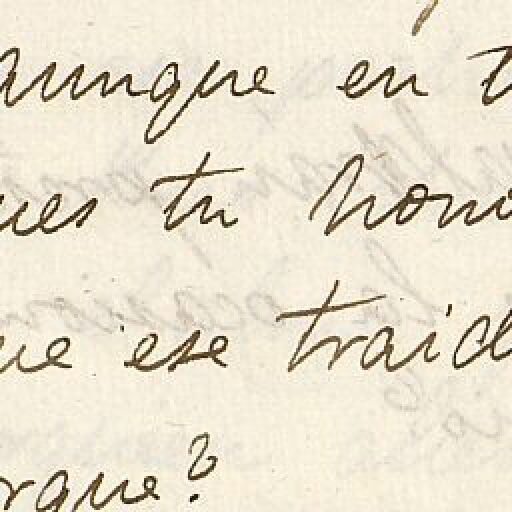 aunque en t
ues tu hono
ue ese traid
rque?